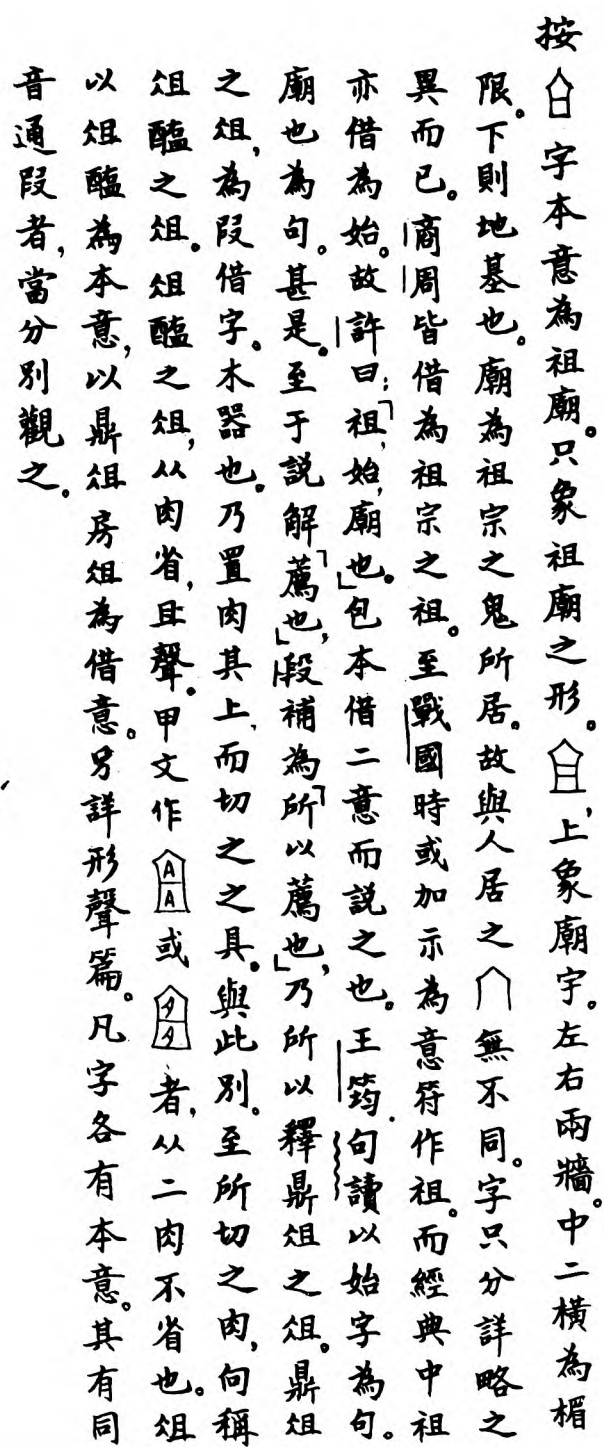 按𠀇字本意為祖廟。只象祖廟之形。且,上象廟宇。左右兩牆。中二橫為楣
限。下則地基也。廟為祖宗之鬼所居。故與人居之宀無不同。字只分詳略之
異而已。商周皆借為祖宗之祖。至戰國時或加示為意符作祖。而經典中祖
亦借為始。故許曰:「祖,始廟也。」包本借二意而說之也。王筠.句讀以始字為句。
廟也為句。甚是。至于說解「薦也」,段補為「所以薦也」,乃所以釋鼎俎之俎。鼎俎
之俎,為叚借字。木器也。乃置肉其上、而切之之具。與此別。至所切之肉,何稱
俎醢之俎。俎醢之俎,从肉省,且聲。甲文作或者,从二肉不省也。俎
以俎醢為本意,以鼎俎房俎為借意。另詳形聲篇。凡字各有本意。其有同
音通叚者,當分別觀之。